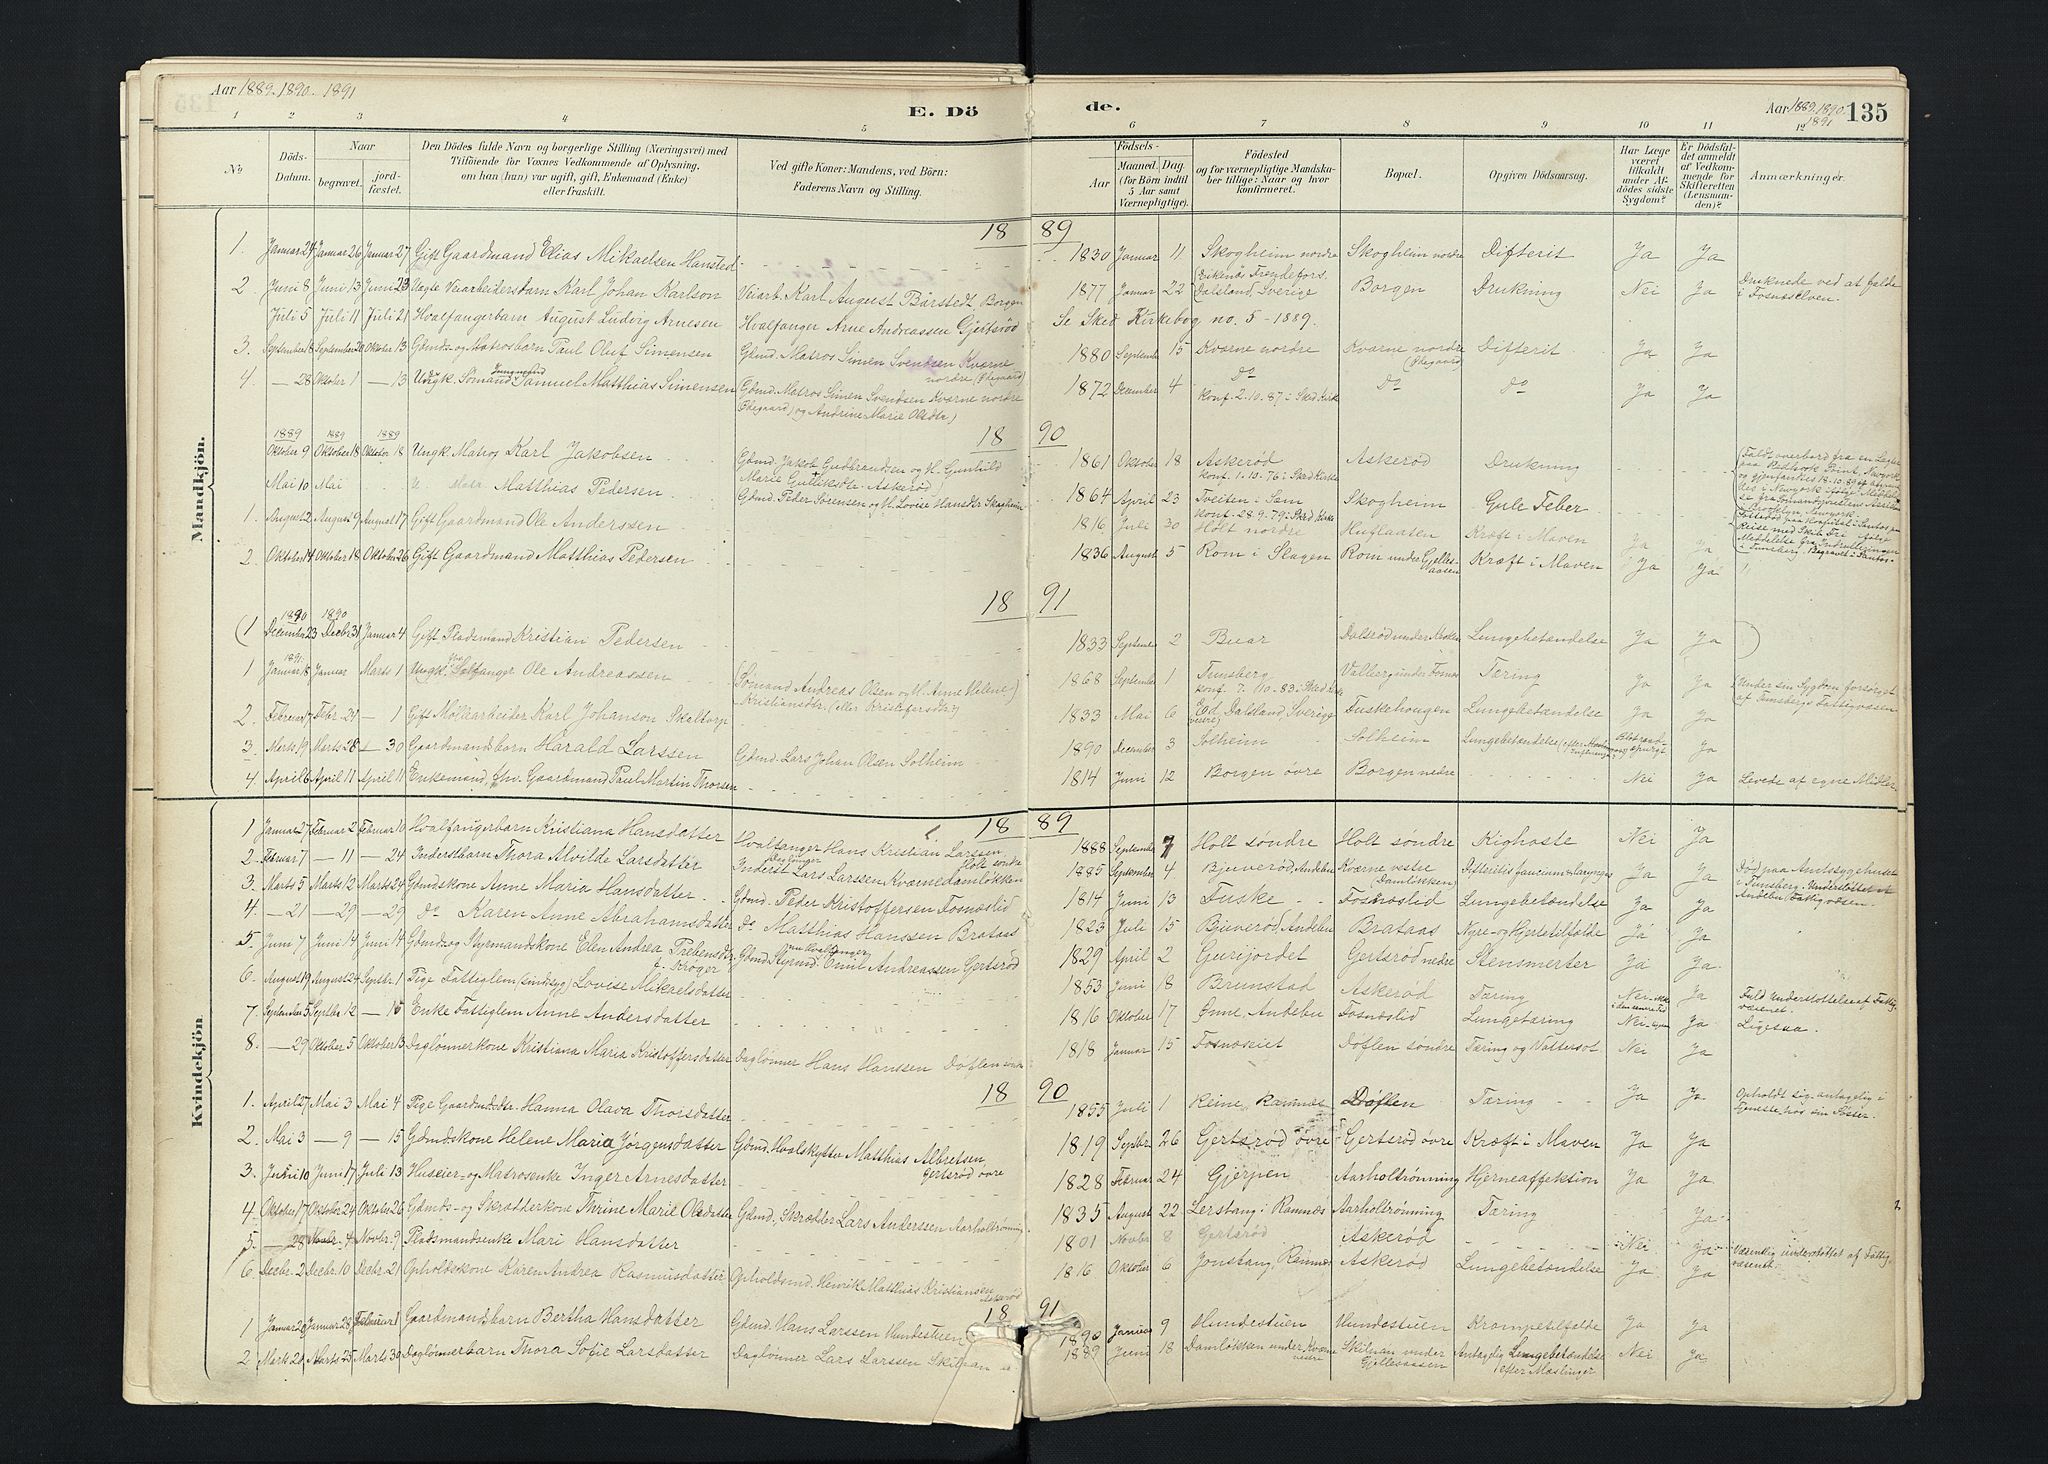 Aar 1889. 1890. 1891
E. Dö
de.
Aar 1889. 1890. 1891
135
1 2 3 4 5 6 7 8 9 10 11 12
No
Döds-Datum.
Naar
begravet.
jordfæstet.
Den Dödes fulde Navn og borgerlige Stilling (Næringsvei) med
Tilföiende for Voxnes Vedkommende af Oplysning,
om han (hun) var ugift, gift, Enkemand (Enke)
eller fraskilt.
Ved gifte Koner: Mandens, ved Börn:
Faderens Navn og Stilling.
Födsels-
Aar
Maaned. Dag.
(for Börn indtil 5 Aar samt Værnepligtige).
Födested
og for værnepligtige Mandskaber tillige: Naar og hvor konfirmeret.
Bopæl.
Opgiven Dödsaarsag.
Har Læge været tilkaldt under Afdödes sidste Sygdom?
Er Dödsfaldet anmeldt af Vedkommende for Skifteretten (Lensmanden)?
Anmærkninger.
Mandkjön.
18 89
1. Januar 24 Januar 26 Januar 27 Gift Gaardmand Elias Mikaelsen Hansted 1830 Januar 11 Skogheim nordre Skogheim nordre Difterit Ja Ja
2 Juni 8 Juni 13 Juni 23 Uægte Veiarbeidersbarn Karl Johan Karlson Veiarb. Karl August Börstedt, Borgen 1877 Januar 22 Dalsland, Sverige Borgen Drukning Nei Ja Druknede ved at falde i Fosnæselven.
Juli 5 Juli 11 Juli 21 Hvalfangerbarn August Ludvig Arnesen Hvalfanger Arne Andreassen Gjertsröd Se Sked Kirkebog no. 5 - 1889.
3. September 18 September 20 Oktober 13 Gbmds- og Matrosbarn Paul Oluf Simensen Gbmd. Matros Simen Svendsen Kvarne nordre (Ödegaard) 1880 September 15 Kvarne nordre Kvarne nordre (Ödegaard) Difterit Ja Ja
4. — 28 Oktober 1 — 13 Ungk. Sömand Jungmand Samuel Matthias Simensen Gbmd. Matros Simen Svendsen Kvarne nordre (Ödegaard) og Andrine Marie Olsdtr) 1872 December 4 Do konf. 2.10.87 i Sked Kirke Do Do Ja Ja
18 90
1889 1889 1889
Oktober 9 Oktober 18 Oktober 18 Ungk. Matros Karl Jakobsen Gbmd. Jakob Gudbrandsen og H. Gunhild Marie Gulliksdtr. Askeröd) 1861 Oktober 18 Askeröd konf. 1.10.76 i Sked Kirke Askeröd Drukning
Mai 10 Mai Matthias Pedersen Gbmd. Peder Sörensen og H. Lovise Hansdtr Skogheim 1864 April 23 Tveiten i Sem konf. 28.9.79 i Sked Kirke Skogheim Gule Feber
1. August 2 August 9 August 17 Gift Gaardmand Ole Anderssen 1816 Juli 30 Holt nordre Huflaaten Kræft i Maven Ja Ja
2. Oktober 14 Oktober 18 Oktober 26 Gift Gaardmand Matthias Pedersen 1836 August 5 Rom i Slagen Rom under Gjellesaasen Kræft i Maven Ja Ja
18 91
1890 1890
(1 December 23 Decbr. 31 Januar 4 Gift Pladsmand Kristian Pedersen 1833 September 2 Buar Dalsröd under Lungebetændelse Ja Ja )
1891
1 Januar 18 Januar Marts 1 Ungk. Ole Andreassen (Sömand Andreas Olsen og H. Anne Helene Kristiansdtr. (eller Kristofersdtr.?) 1868 September 1 Tunsberg konf. 7.10.83 i Sked Kirke Valleer under Fornes Tæring Ja Ja (Under sin Sygdom forsörget af Tunsbergs Fattigvæsen
2. Februar 17 Febr. 24 — 1 Gift Möllearbeider Karl Johanson Skaltorp 1833 Mai 6 Ed, Dalsland, Sverige Fuskehougen Lungebetændelse Ja Ja
3. Marts 19 Marts 28 — 30 Gaardmandsbarn Harald Larssen Gbmd. Lars Johan Olsen Solheim 1890 December 3 Solheim Solheim Lungebetændelse Ja
4 April 6 April 11 April 11 Enkemand, fhv. Gaardmand Paul Martin Thorsen 1814 Juni 12 Borgen övre Borgen nedre Nei Ja Levede af egne Midler
Kvindekjön
18 89
1 Januar 27 Februar 2 Februar 10 Hvalfangerbarn Kristiana Hansdatter Hvalfanger Hans Kristian Larssen Holt söndre 1888 September 7 Holt söndre Holt söndre Kighoste Nei Ja
2. Februar 7 — 11 — 24 Inderstbarn Thora Alvilde Larsdatter Inderst Daglönner Lars Larssen Kvarne Damlökken 1885 September 4 Bjuveröd, Andebu Kvarne vestre (Damlökken) Difteritis faucium & laryngis Ja Ja Död paa Amtssygehuset i Tunsberg. Understöttet af Andebu Fattigvæsen.
3. Marts 5 Marts 12 Marts 24 Gbmdskone Anne Maria Hansdatter Gbmd. Peder Kristoffersen Fosnæslid 1814 Juni 13 Fuske Fosnæslid Lungebetændelse Ja Ja
4. — 21 — 29 — 29 Do Karen Anne Abrahamsdatter Do Matthias Hanssen Brataas 1823 Juli 15 Bjuveröd Andebu Brataas Nyre- og Hjertetilfælde Ja Ja
5. Juni 7 Juni 14 Juni 14 Gbmds og Styrmandskone Elen Andrea Prebensdtr. f. Kröger Gbmd. Styrmd. nu Hvalfanger Emil Andreassen Gertsröd 1829 April 2 Gurejordet Gertsröd nedre Stensmerter Ja Ja
6. August 19 August 24 Septbr. 1 Pige Fattiglem (sindssyg) Lovise Mikkelsdatter 1853 Juni 18 Brunstad Askeröd Tæring Nei Ja Fuld Understöttelse af Fattigvæsenet.
7. September 5 Septbr. 12 — 15 Enke Fattiglem Anne Andersdatter 1816 Oktober 17 Önne, Andebu Fosnæslid Lungetæring Nei Ja Ligesaa.
8. — 29 Oktober 5 Oktober 13 Daglönnerkone Kristiana Maria Kristoffersdatter Daglönner Hans Hanssen Döflen söndre 1818 Januar 15 Fosnæseiet Döflen söndre Tæring og Vattersot Nei Ja
18 90
1. April 27 Mai 3 Mai 4 Pige Gaardmdsdtr. Hanna Olava Thorsdatter 1855 Juli 1 Reine, Ramnes Döflen Tæring Ja Ja Opholdt sig antagelig i Tjeneste hos sin Söster.
2. Mai 3 — 9 — 15 Gbmdskone Helene Maria Jörgensdatter Gbmd. Hvalskytter Matthias Albretsen Gertsröd övre 1819 Septbr. 26 Gertsröd övre Gertsröd övre Kræft i Maven Ja Ja
3. Juni 10 Juni 17 Juli 13 Huseier- og Matrosenke Inger Arnesdatter 1828 Februar 24 Gjerpen Aarholtrönning Hjerneaffektion Ja Ja
4. Oktober 17 Oktober 24 Oktober 26 Gbmds- og Skrædderkone Thrine Marie Olsdatter Gbmd. Skrædder Lars Anderssen Aarholtrönning 1835 August 22 Lerstang i Ramnes Aarholtrönning Tæring Ja
5. — 28 Novbr. 4 Novbr. 9 Pladsmandsenke Mari Hansdatter 1801 Novbr 8 Gertsröd Askeröd Nei Ja Væsentlig understöttet af Fattigvæsenet.
6. Decbr. 2 Decbr. 10 Decbr. 21 Opholdskone Karen Andrea Rasmusdatter Opholdsmd. Henrik Matthias Kristiansen Askeröd 1816 Oktober 6 Jonstang, Ramnes Askeröd Lungebetændelse Ja Ja
18 91
1 Januar 20 Januar 28 Februar 1 Gaardmandsbarn Bertha Hansdatter Gbmd. Hans Larssen Hundestuen 1890 Januar 9 Hundestuen Hundestuen Krampetilfælde Ja Ja
2 Marts 20 Marts 25 Marts 30 Daglönnerbarn Thora Sofie Larsdatter Daglönner Lars Larssen Skilnan 1889 Juni 18 Damlökken under Kvarne vestre Skilnan under Gjellesaasen Antagelig Lungebetændelse efter Mæslinger Nei Ja